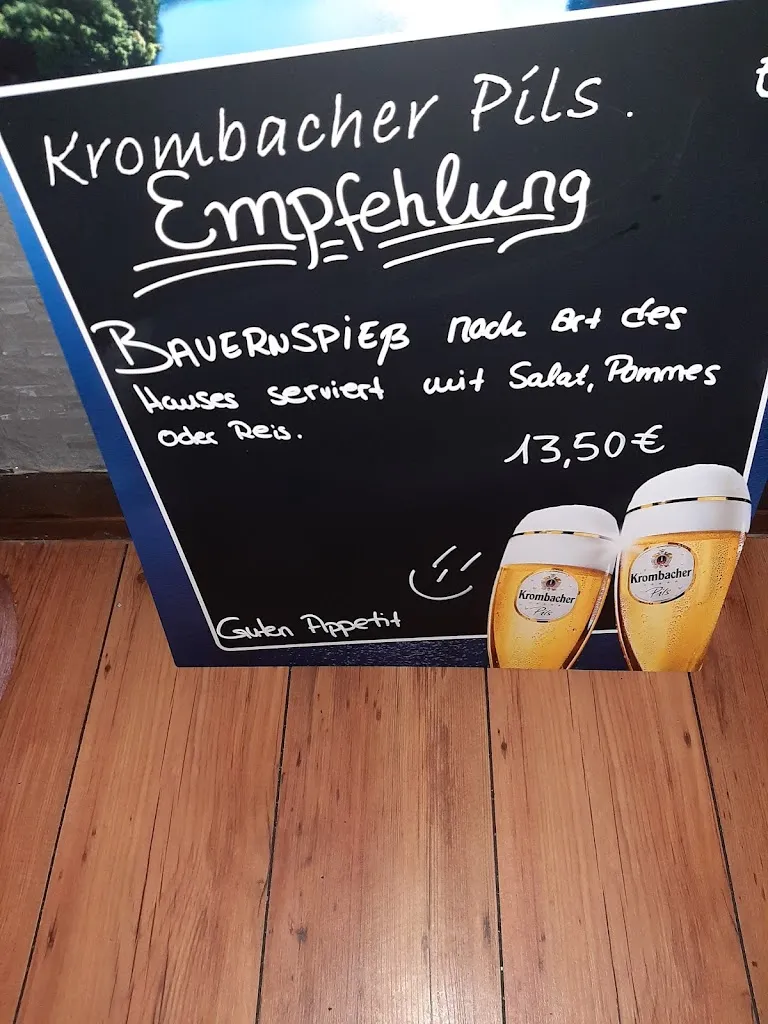 Krombacher Pils.
Empfehlung
BAUERNSPIEß nach Art des
Hauses serviert mit Salat, Pommes
oder Reis.
13,50€
Guten Appetit
Krombacher
Pils
Krombacher
Pils